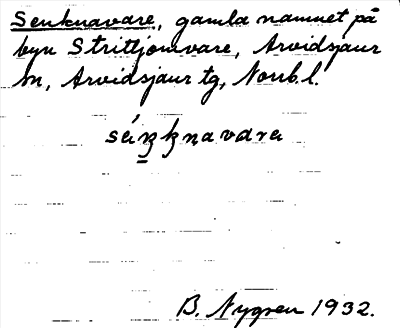 Senknavare, gamla namnet på
byn Strittjomvare, Arvidsjaur
sn, Arvidsjaur tg, Norrb. l.
B. Nygren 1932.